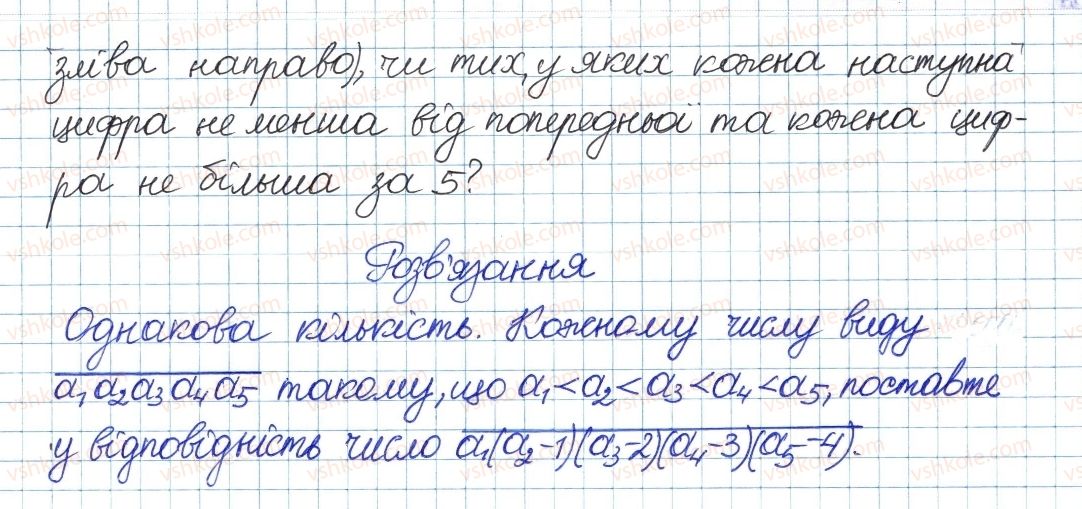 зліва направо), чи тих, у яких кожна наступна
цифра не менша від попередньої та кожна циф-
ра не більша за 5?
Розв'язання
Однакова кількість. Кожному числу виду
a₁a₂a₃a₄a₅ такому, що a₁<a₂<a₃<a₄<a₅, поставте
у відповідність число a₁(a₂-1)(a₃-2)(a₄-3)(a₅-4).